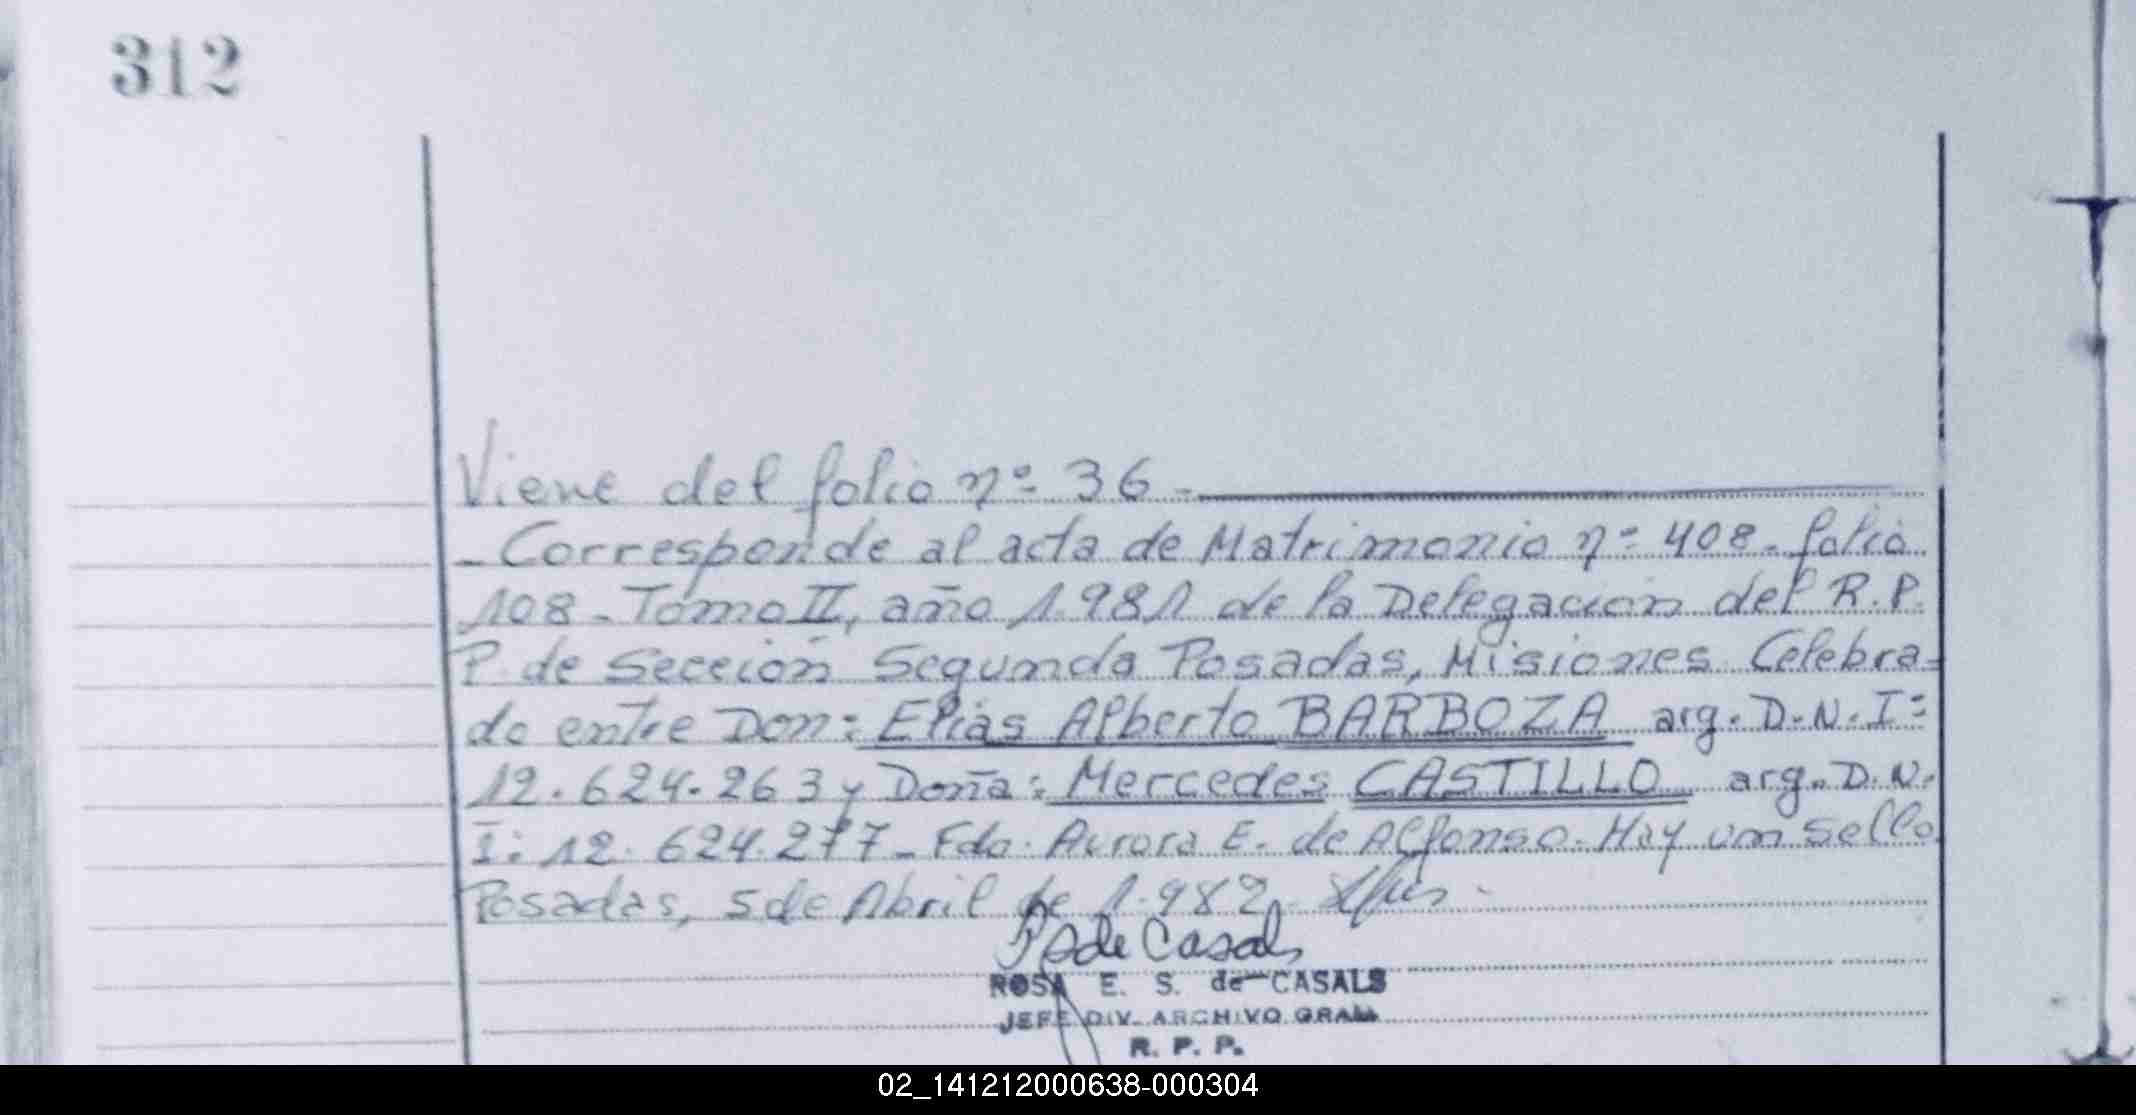 312
Viene del folio nº 36 -
- Corresponde al acta de Matrimonio nº 408 - folio
108 - Tomo II, año 1.981 de la Delegación del R.P.
P. de Sección Segunda Posadas, Misiones Celebra-
do entre Don: Elias Alberto BARBOZA arg. D.N.I:
12.624.263 y Doña: Mercedes CASTILLO arg. D.N.
I: 12.624.277 - Fdo. Aurora E. de Alfonso - Hay un sello.
Posadas, 5 de Abril de 1.982 -
de Casals
ROSA E. S. de CASALS
JEFE DIV. ARCHIVO GRAL.
R. P. P.
02_141212000638-000304